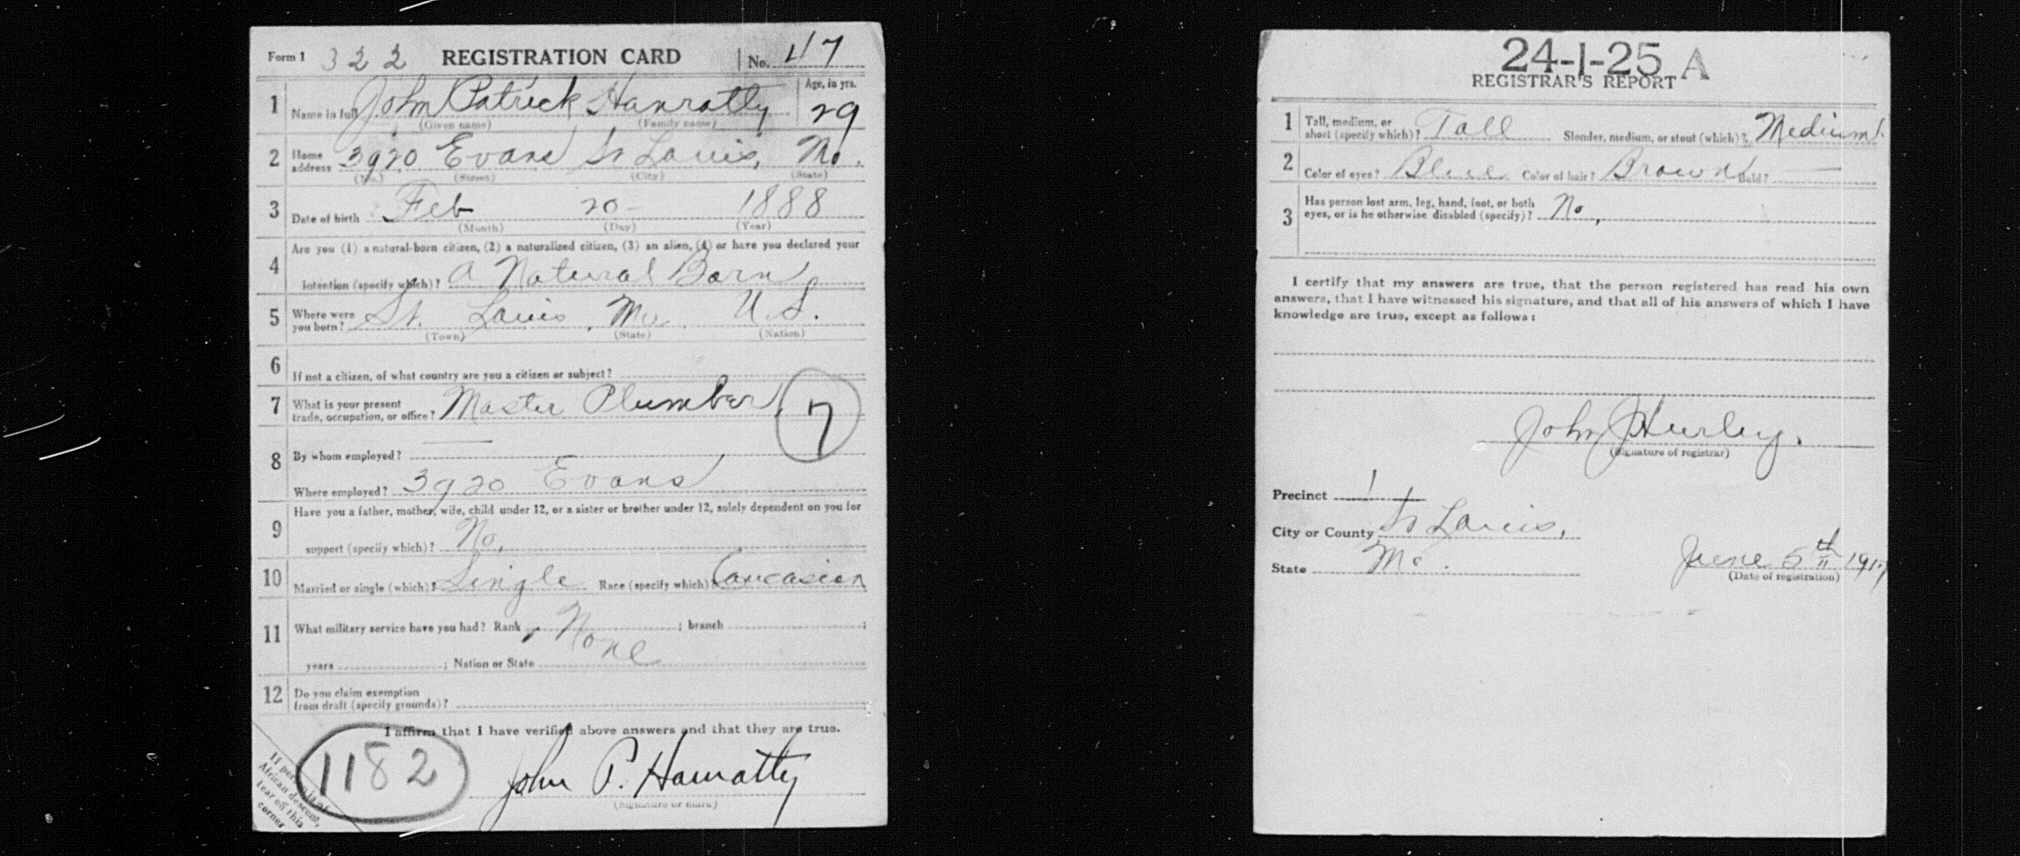 Form 1 322 REGISTRATION CARD No. 47
1 Name in full John Patrick Hanratty Age, in yrs. 29
(Given name) (Family name)
2 Home address 3920 Evans St Louis, Mo.
(No.) (Street) (City) (State)
3 Date of birth Feb 20 - 1888
(Month) (Day) (Year)
4 Are you (1) a natural-born citizen, (2) a naturalized citizen, (3) an alien, (4) or have you declared your
intention (specify which)? a Natural Born
5 Where were you born? St. Louis, Mo. U.S.
(Town) (State) (Nation)
6 If not a citizen, of what country are you a citizen or subject?
7 What is your present trade, occupation, or office? Master Plumber 7
8 By whom employed? —
Where employed? 3920 Evans
9 Have you a father, mother, wife, child under 12, or a sister or brother under 12, solely dependent on you for
support (specify which)? No,
10 Married or single (which)? Single Race (specify which)? Caucasian
11 What military service have you had? Rank None ; branch ;
years ; Nation or State
12 Do you claim exemption
from draft (specify grounds)?
I affirm that I have verified above answers and that they are true.
1182
John P. Hanratty
(Signature or mark)
If person is of
African descent,
tear off this
corner
24-1-25 A
REGISTRAR'S REPORT
1 Tall, medium, or short (specify which)? Tall Slender, medium, or stout (which)? Medium.
2 Color of eyes? Blue Color of hair? Brown Bald? —
3 Has person lost arm, leg, hand, foot, or both
eyes, or is he otherwise disabled (specify)? No,
I certify that my answers are true, that the person registered has read his own
answers, that I have witnessed his signature, and that all of his answers of which I have
knowledge are true, except as follows:
John J Hurley.
(Signature of registrar)
Precinct 1
City or County St Louis,
State Mo. June 5th 1917
(Date of registration)